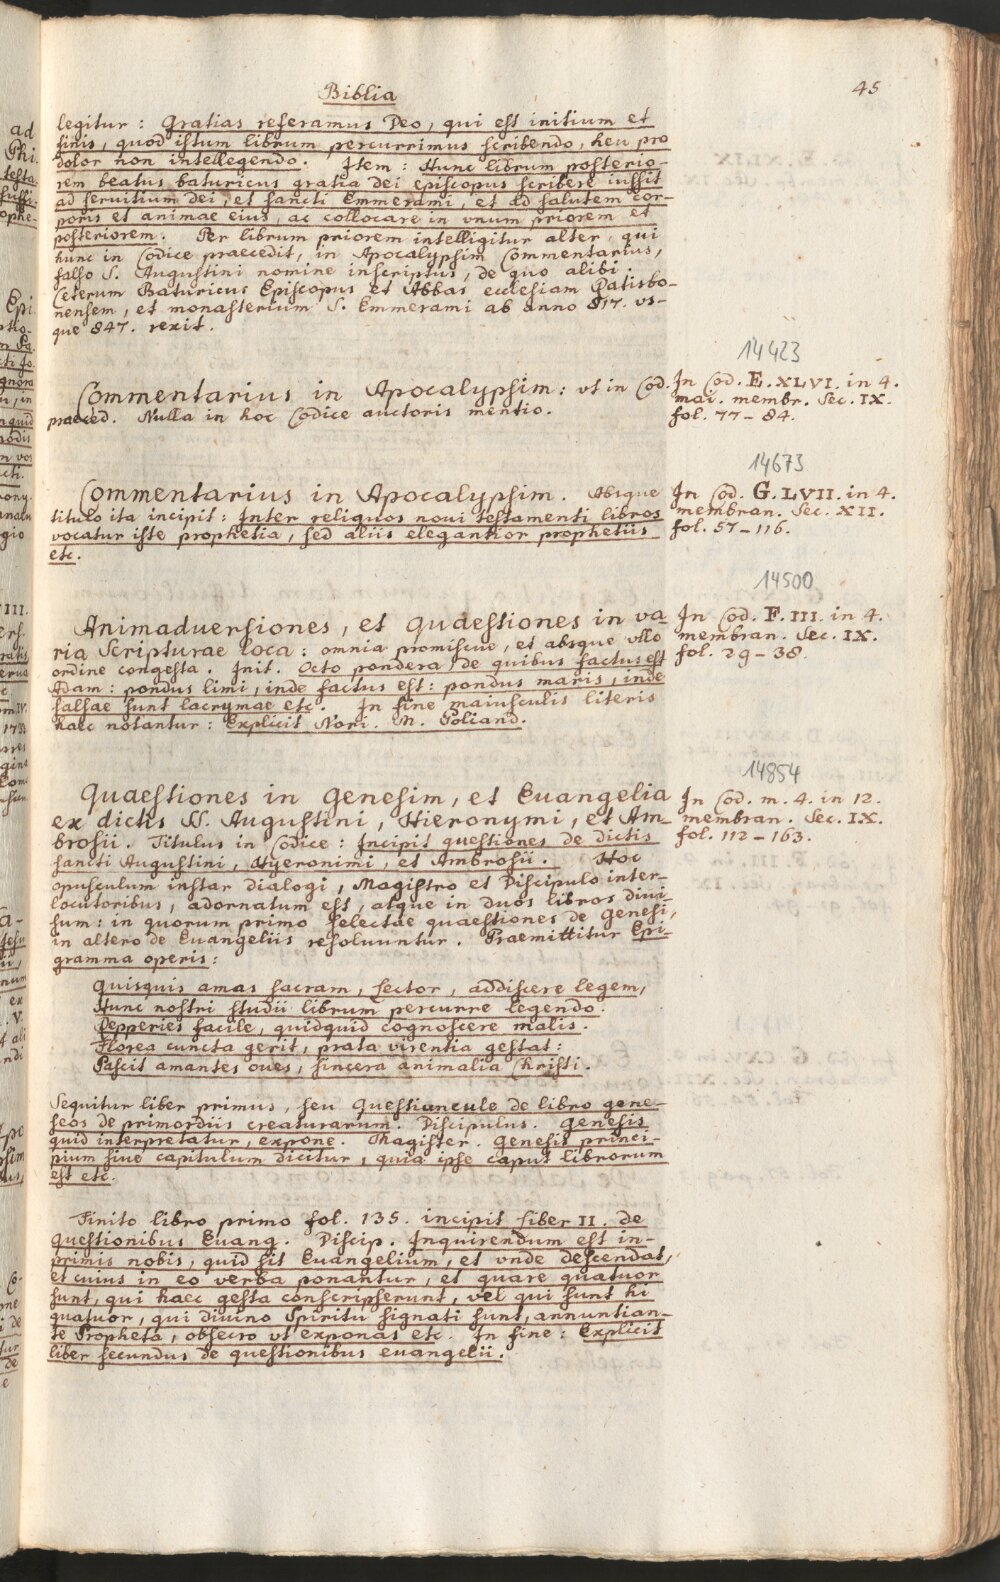 Biblia
45
legitur: Gratias referamus Deo, qui est initium et
finis, quod istum librum percurrimus scribendo, heu pro
dolor non intellegendo. Item: Hunc librum posterio-
rem beatus baturicus gratia dei episcopus scribere iussit
ad seruitium dei, et sancti Emmerami, et ad salutem cor-
poris et animae eius, ac collocare in vnum priorem et
posteriorem. Per librum priorem intelligitur alter, qui
hunc in Codice praecedit, in Apocalypsim Commentarius,
falso S. Augustini nomine inscriptus, de quo alibi.
Ceterum Baturicus Episcopus et Abbas ecclesiam Ratisbo-
nensem, et monasterium S. Emmerami ab anno 817. vs-
que 847. rexit.
14423
Commentarius in Apocalypsim: vt in Cod.
praeced. Nulla in hoc Codice auctoris mentio.
In Cod. E. XLVI. in 4.
mai. membr. Sec. IX.
fol. 77-84.
14673
Commentarius in Apocalypsim. Absque
titulo ita incipit: Inter reliquos noui testamenti libros
vocatur iste prophetia, sed aliis elegantior prophetiis
etc.
In Cod. G. LVII. in 4.
membran. Sec. XII.
fol. 57-116.
14500
Animaduersiones, et quaestiones in va-
ria Scripturae loca: omnia promiscue, et absque vllo
ordine congesta. Init. Octo pondera de quibus factus est
Adam: pondus limi, inde factus est: pondus maris, inde
salsae sunt lacrymae etc. In fine maiusculis literis
haec notantur: Explicit Nori. M. Goliand.
In Cod. F. III. in 4.
membran. Sec. IX.
fol. 29-38.
14854
Quaestiones in Genesim, et Euangelia
ex dictis SS. Augustini, Hieronymi, et Am-
brosii. Titulus in Codice: Incipit questiones de dictis
sancti Augustini, Hyeronimi, et Ambrosii. Hoc
opusculum instar dialogi, Magistro et Discipulo inter-
locutoribus, adornatum est, atque in duos libros diui-
sum: in quorum primo selectae quaestiones de Genesi,
in altero de Euangeliis resoluuntur. Praemittitur Epi-
gramma operis:
In Cod. m. 4. in 12.
membran. Sec. IX.
fol. 112-163.
Quisquis amas sacram, Lector, addiscere legem,
Hunc nostri studii librum percurre legendo.
Repperies facile, quidquid cognoscere malis.
Florea cuncta gerit, prata virentia gestat:
Pascit amantes oues, sincera animalia Christi.
Sequitur liber primus, seu Questiuncule de libro gene-
seos de primordiis creaturarum. Discipulus. Genesis
quid interpretatur, expone. Magister. Genesis princi-
pium siue capitulum dicitur, quia ipse caput librorum
est etc.
Finito libro primo fol. 135. incipit Liber II. de
questionibus Euang. Discip. Inquirendum est in-
primis nobis, quid sit Euangelium, et vnde descendat,
et cuius in eo verba ponantur, et quare quatuor
sunt, qui haec gesta conscripserunt, vel qui sunt hi
quatuor, qui diuino Spiritu signati sunt, annuntian-
te Propheta, obsecro vt exponas etc. In fine: Explicit
liber secundus de questionibus euangelii.